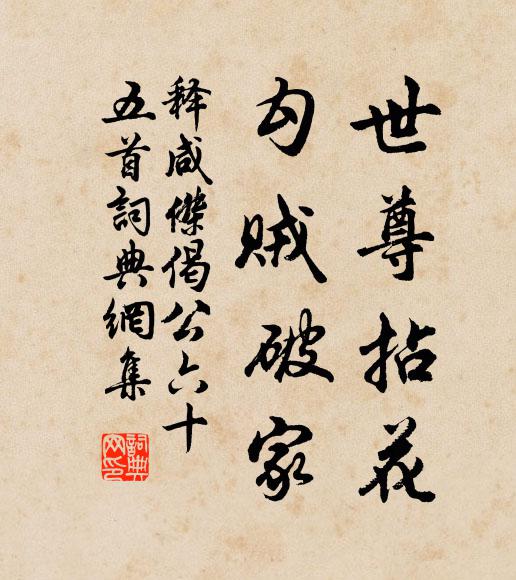 世尊拈花
勾贼破家
释咸傑偈公六十
五首詞典網集
詞典网印